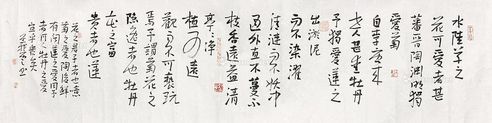 水陸草之
花可愛者甚
蕃晉陶淵明獨
愛菊
自李唐來
世人甚愛牡丹
予獨愛蓮之
出淤泥
而不染濯
清漣而不妖中
通外直不蔓不
枝香遠益清
亭亭淨
植可遠
觀不可褻玩
焉予謂菊花之
隱逸者也牡丹
花之富
貴者也蓮
花之君子者也噫
菊之愛陶後鮮
有聞蓮之愛同予
者何人牡丹之愛
宜乎眾矣